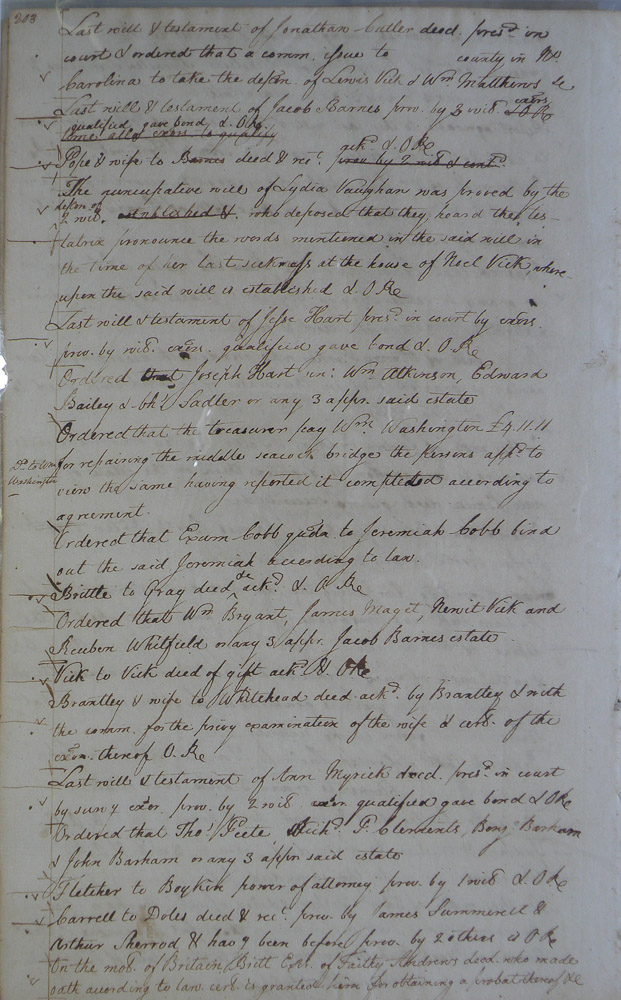 203
Last will & testament of Jonathan Cutler decd. presd. in
court & ordered that a comm. issue to county in No
Carolina to take the depsn. of Lewis Vick & Wm Matthews &c
Last will & testament of Jacob Barnes prov. by 2 wits. exors
qualified gave bond & O.Re. & ORe
time alld exors to qualify
ackd. & O Re
Pope & wife to Barnes deed & rect. prov by 2 wits & contd.
The nuncupative will of Lydia Vaughan was proved by the
depsn of
2 wits. established &. who deposed that they heard the tes-
tatrix pronounce the words mentioned in the said will in
the time of her last sickness at the house of Noel Vick, where
upon the said will is established & O Re
Last will & testament of Jesse Hart presd. in court by exors.
prov. by wits. exor. qualified gave bond & O.Re
Ordered that Joseph Hart Wm. Atkinson, Edward
Bailey & Sadler or any 3 appr. said estate
Ordered that the treasurer pay Wm. Washington £4.11.11
Washington
for repairing the middle seacock bridge the persons appd. to
view the same having reported it completed according to
agreement.
Ordered that Exum Cobb gudn. to Jeremiah Cobb bind
out the said Jeremiah according to law.
Brittle to Gray deed ackd. & O Re
Ordered that Wm Bryant, James Maget, Newit Vick and
Reuben Whitfield or any 3 appr. Jacob Barnes estate
Vick to Vick deed of gift ackd. & ORe
Brantley & wife to Whitehead deed ackd. by Brantley & with
the comm. for the privy examination of the wife & certt. of the
exon. thereof O.Re
Last will & testament of Ann Myrick decd. presd. in court
by exor. prov. by 2 wits exor. qualified gave bond & ORe
Ordered that Thos. Peete, P. Clements, Benj Barham
& John Barham or any 3 appr said estate
Fletcher to Boykin power of attorney prov. by 1 wits & O Re
Carrell to Doles deed & rect. prov. by James Summerell &
Arthur Sherrod & havg been before prov. by 2 others is O Re
On the mot. of Britain Britt Exr. of Faithy Andrews decd. who made
oath according to law certt. is granted him for obtaining a probat thereof &c